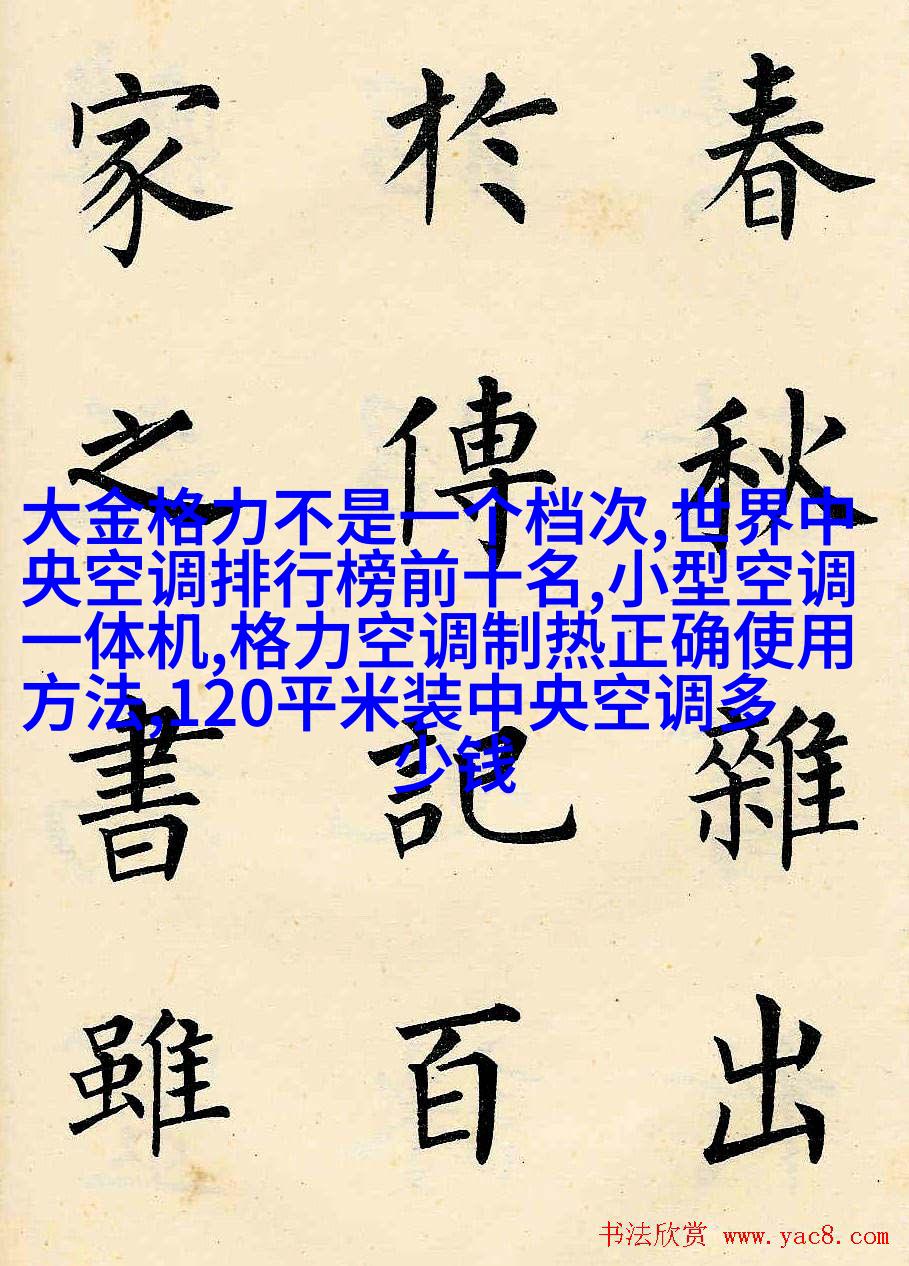 春秋雜出
於傳記百
家之書雖
大金格力不是一个档次,世界中
央空调排行榜前十名,小型空调
一体机,格力空调制热正确使用
方法,120平米装中央空调多
少钱
书法欣赏 www.yac8.com